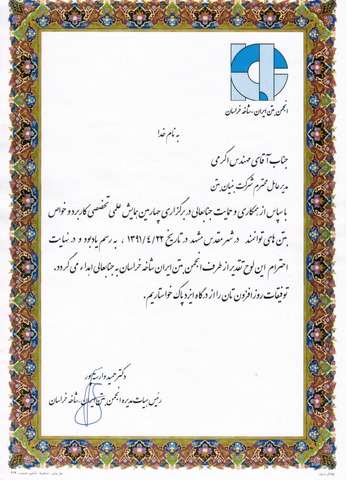 انجمن بتن ایران-شاخه خراسان
به نام خدا
جناب آقای مهندس اکرمی
مدیرعامل محترم شرکت بنیان بتن
با سپاس از همکاری و حمایت جنابعالی در برگزاری چهارمین همایش علمی تخصصی کاربرد و خواص
بتن های توانمند در شهر مقدس مشهد در تاریخ ۱۳۹۱/۴/۲۲ ، به رسم یادبود و در نهایت
احترام این لوح تقدیر از طرف انجمن بتن ایران شاخه خراسان به جنابعالی اهداء می گردد.
توفیقات روز افزون تان را از درگاه ایزد پاک خواستاریم.
دکتر حمید وارسته پور
رئیس هیات مدیره انجمن بتن ایران-شاخه خراسان